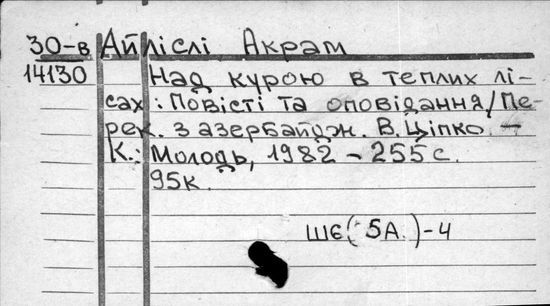 30-в Айліслі Акрам
14130 Над курою в теплих лі-
сах: Повісті та оповідання/Пе-
рек. з азербайдж. В.Ціпко. –
К.: Молодь, 1982 – 255 с.
95к.
ШЄ(5А.)-4